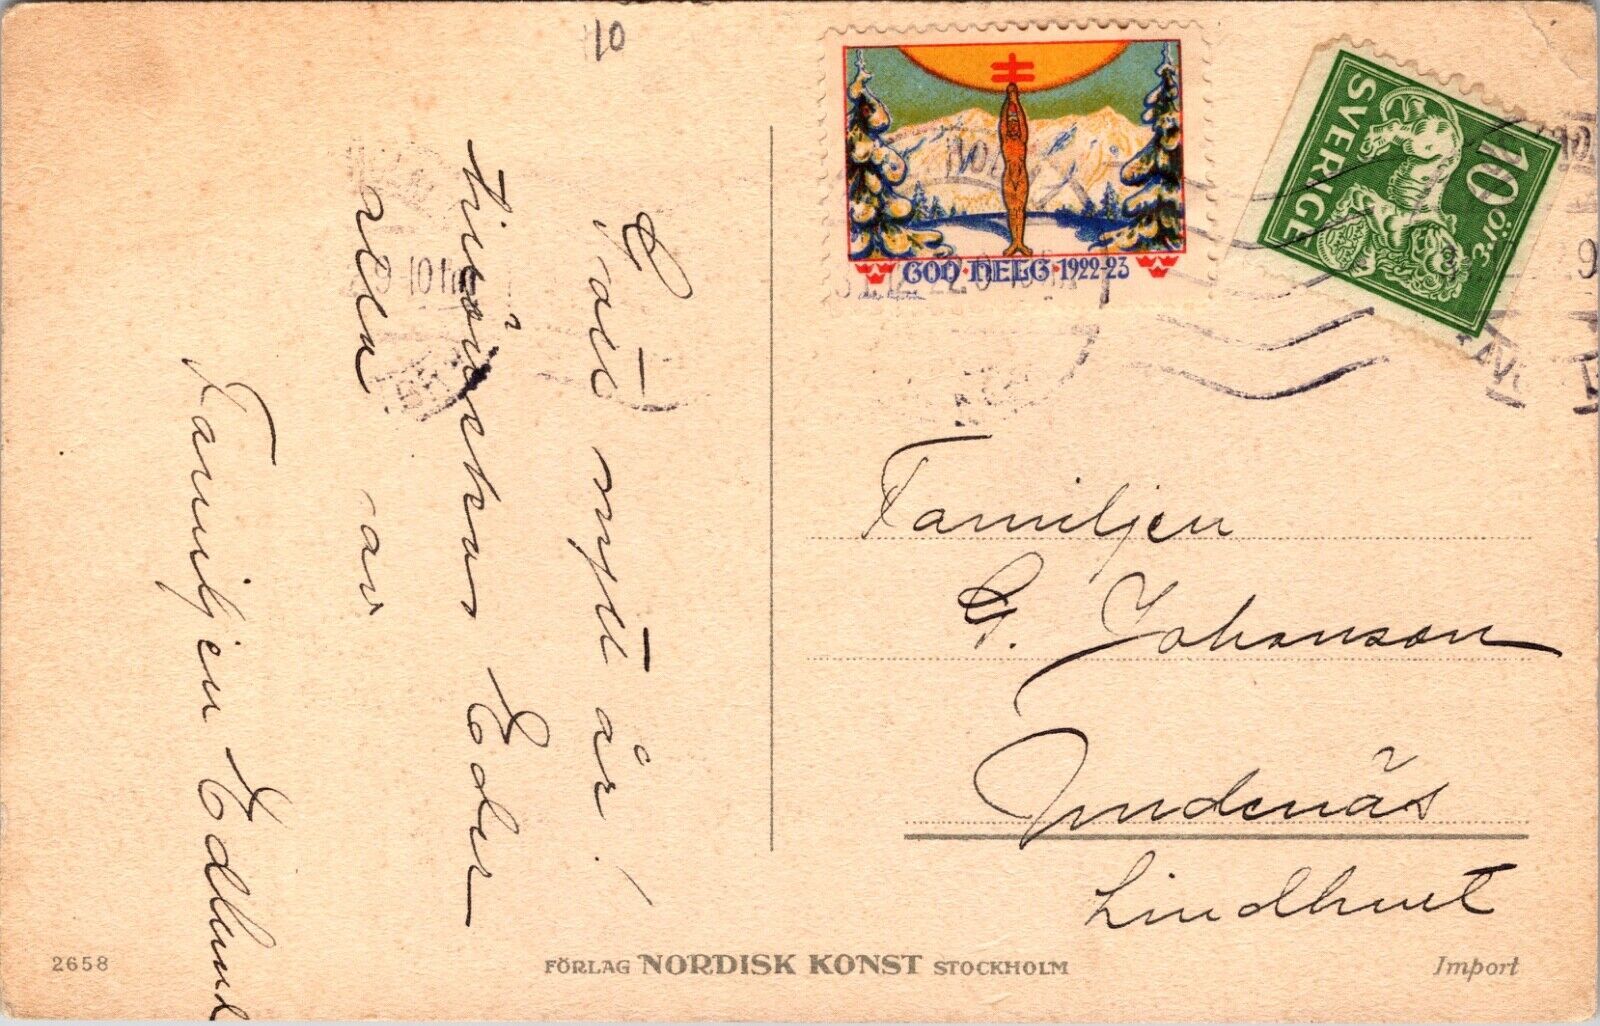 10
Gott nytt år!
tillönskas Eder
alla av
Familjen Edlund
GOD HELG 1922-23
SVERIGE
10 öre
31.12.22
Familjen
G. Johanson
Undenäs
Lindhult
2658
FÖRLAG NORDISK KONST STOCKHOLM
Import